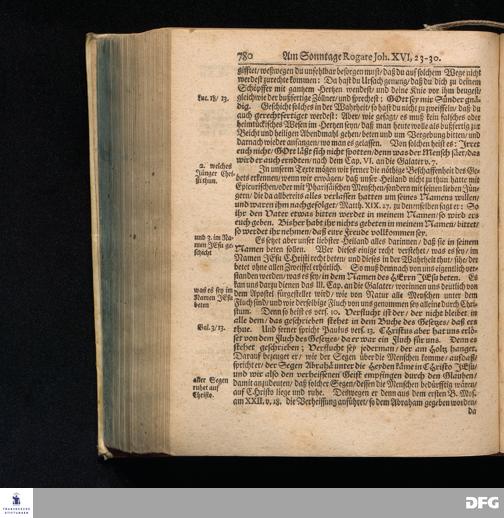 780 Am Sonntage Rogate Joh. XVI, 23-30.
gifftet/weßwegen du unfehlbar besorgen must/daß du auf solchem Wege nicht
werdest zurechte kommen: Da hast du Ursach genung/daß du dich zu deinem
Schöpffer mit gantzem Hertzen wendest/ und deine Knie vor ihm beugest/
gleichwie der bußfertige Zöllner/ und sprechest: GOtt sey mir Sünder gnä-
Luc. 18/ 13.
dig. Geschicht solches in der Wahrheit/ so hast du nicht zu zweiffeln/ daß du
auch gerechtfertiget werdest: Aber/ wie gesagt/ es muß kein falsches oder
heimtückisches Wesen im Hertzen seyn/ daß man heute wolle als bußfertig zur
Beicht und heiligen Abendmahl gehen/ beten und um Vergebung bitten/ und
darnach wieder anfangen/ wo man es gelassen. Von solchen heist es: Irret
euch nicht/ GOtt läst sich nicht spotten/ denn was der Mensch säet/ das
wird er auch erndten/ nach dem Cap. VI. an die Galater v. 7.
2. welches
Jünger Chri-
sti thun.
In unserm Texte mögen wir ferner die nöthige Beschaffenheit des Ge-
bets erkennen/ wenn wir erwägen/ daß unser Heiland nicht zu thun hatte mit
Epicurischen/ oder mit Pharisäischen Menschen/ sondern mit seinen lieben Jün-
gern/ die da allbereits alles verlassen hatten um seines Namens willen/
und waren ihm nachgefolget/ Matth. XIX. 27. zu denenselben sagt er: So
ihr den Vater etwas bitten werdet in meinem Namen/ so wird ers
euch geben. Bisher habt ihr nichts gebeten in meinem Namen/ bittet/
so werdet ihr nehmen/ daß eure Freude vollkommen sey.
und 3. im Na-
men JEsu ge-
schicht
Es setzet aber unser liebster Heiland alles darinnen/ daß sie in seinem
Namen beten sollen. Wer dieses einige recht verstehet/ was es sey/ im
Namen JEsu CHristi recht beten/ und dieses in der Wahrheit thut/ sihe/ der
betet ohne allen Zweiffel erhörlich. So muß demnach von uns eigentlich ver-
standen werden/ was es sey/ in dem Namen des HErrn JESu beten. Es
was es sey im
Namen JEsu
beten
kan uns darzu dienen das III. Cap. an die Galater/ worinnen uns deutlich von
dem Apostel fürgestellet wird/ wie von Natur alle Menschen unter dem
Fluch sind/ und wie derselbige Fluch von uns genommen sey alleine durch Chri-
stum. Denn so heist es vers. 10. Verflucht ist der/ der nicht bleibet in
alle dem/ das geschrieben stehet in dem Buche des Gesetzes/ daß ers
Gal. 3/ 13.
thue. Und ferner spricht Paulus vers. 13. CHristus aber hat uns erlö-
set von dem Fluch des Gesetzes/ da er war ein Fluch für uns. Denn es
stehet geschrieben; Verflucht sey jederman/ der am Holtz hanget.
Darauf bezeuget er/ wie der Segen über die Menschen komme/ auf daß/
spricht er/ der Segen Abrahä unter die Heyden käme in CHristo JEsu/
und wir also den verheissenen Geist empfingen durch den Glauben/
aller Segen
ruhet auf
Christo.
damit anzudeuten/ daß solcher Segen/ dessen die Menschen bedürfftig wären/
auf CHristo liege und ruhe. Deswegen er denn aus dem ersten B. Mos.
am XXII. v. 18. die Verheissung anführet/ so dem Abraham gegeben worden/
da
FRANCKESCHE
STIFTUNGEN
DFG